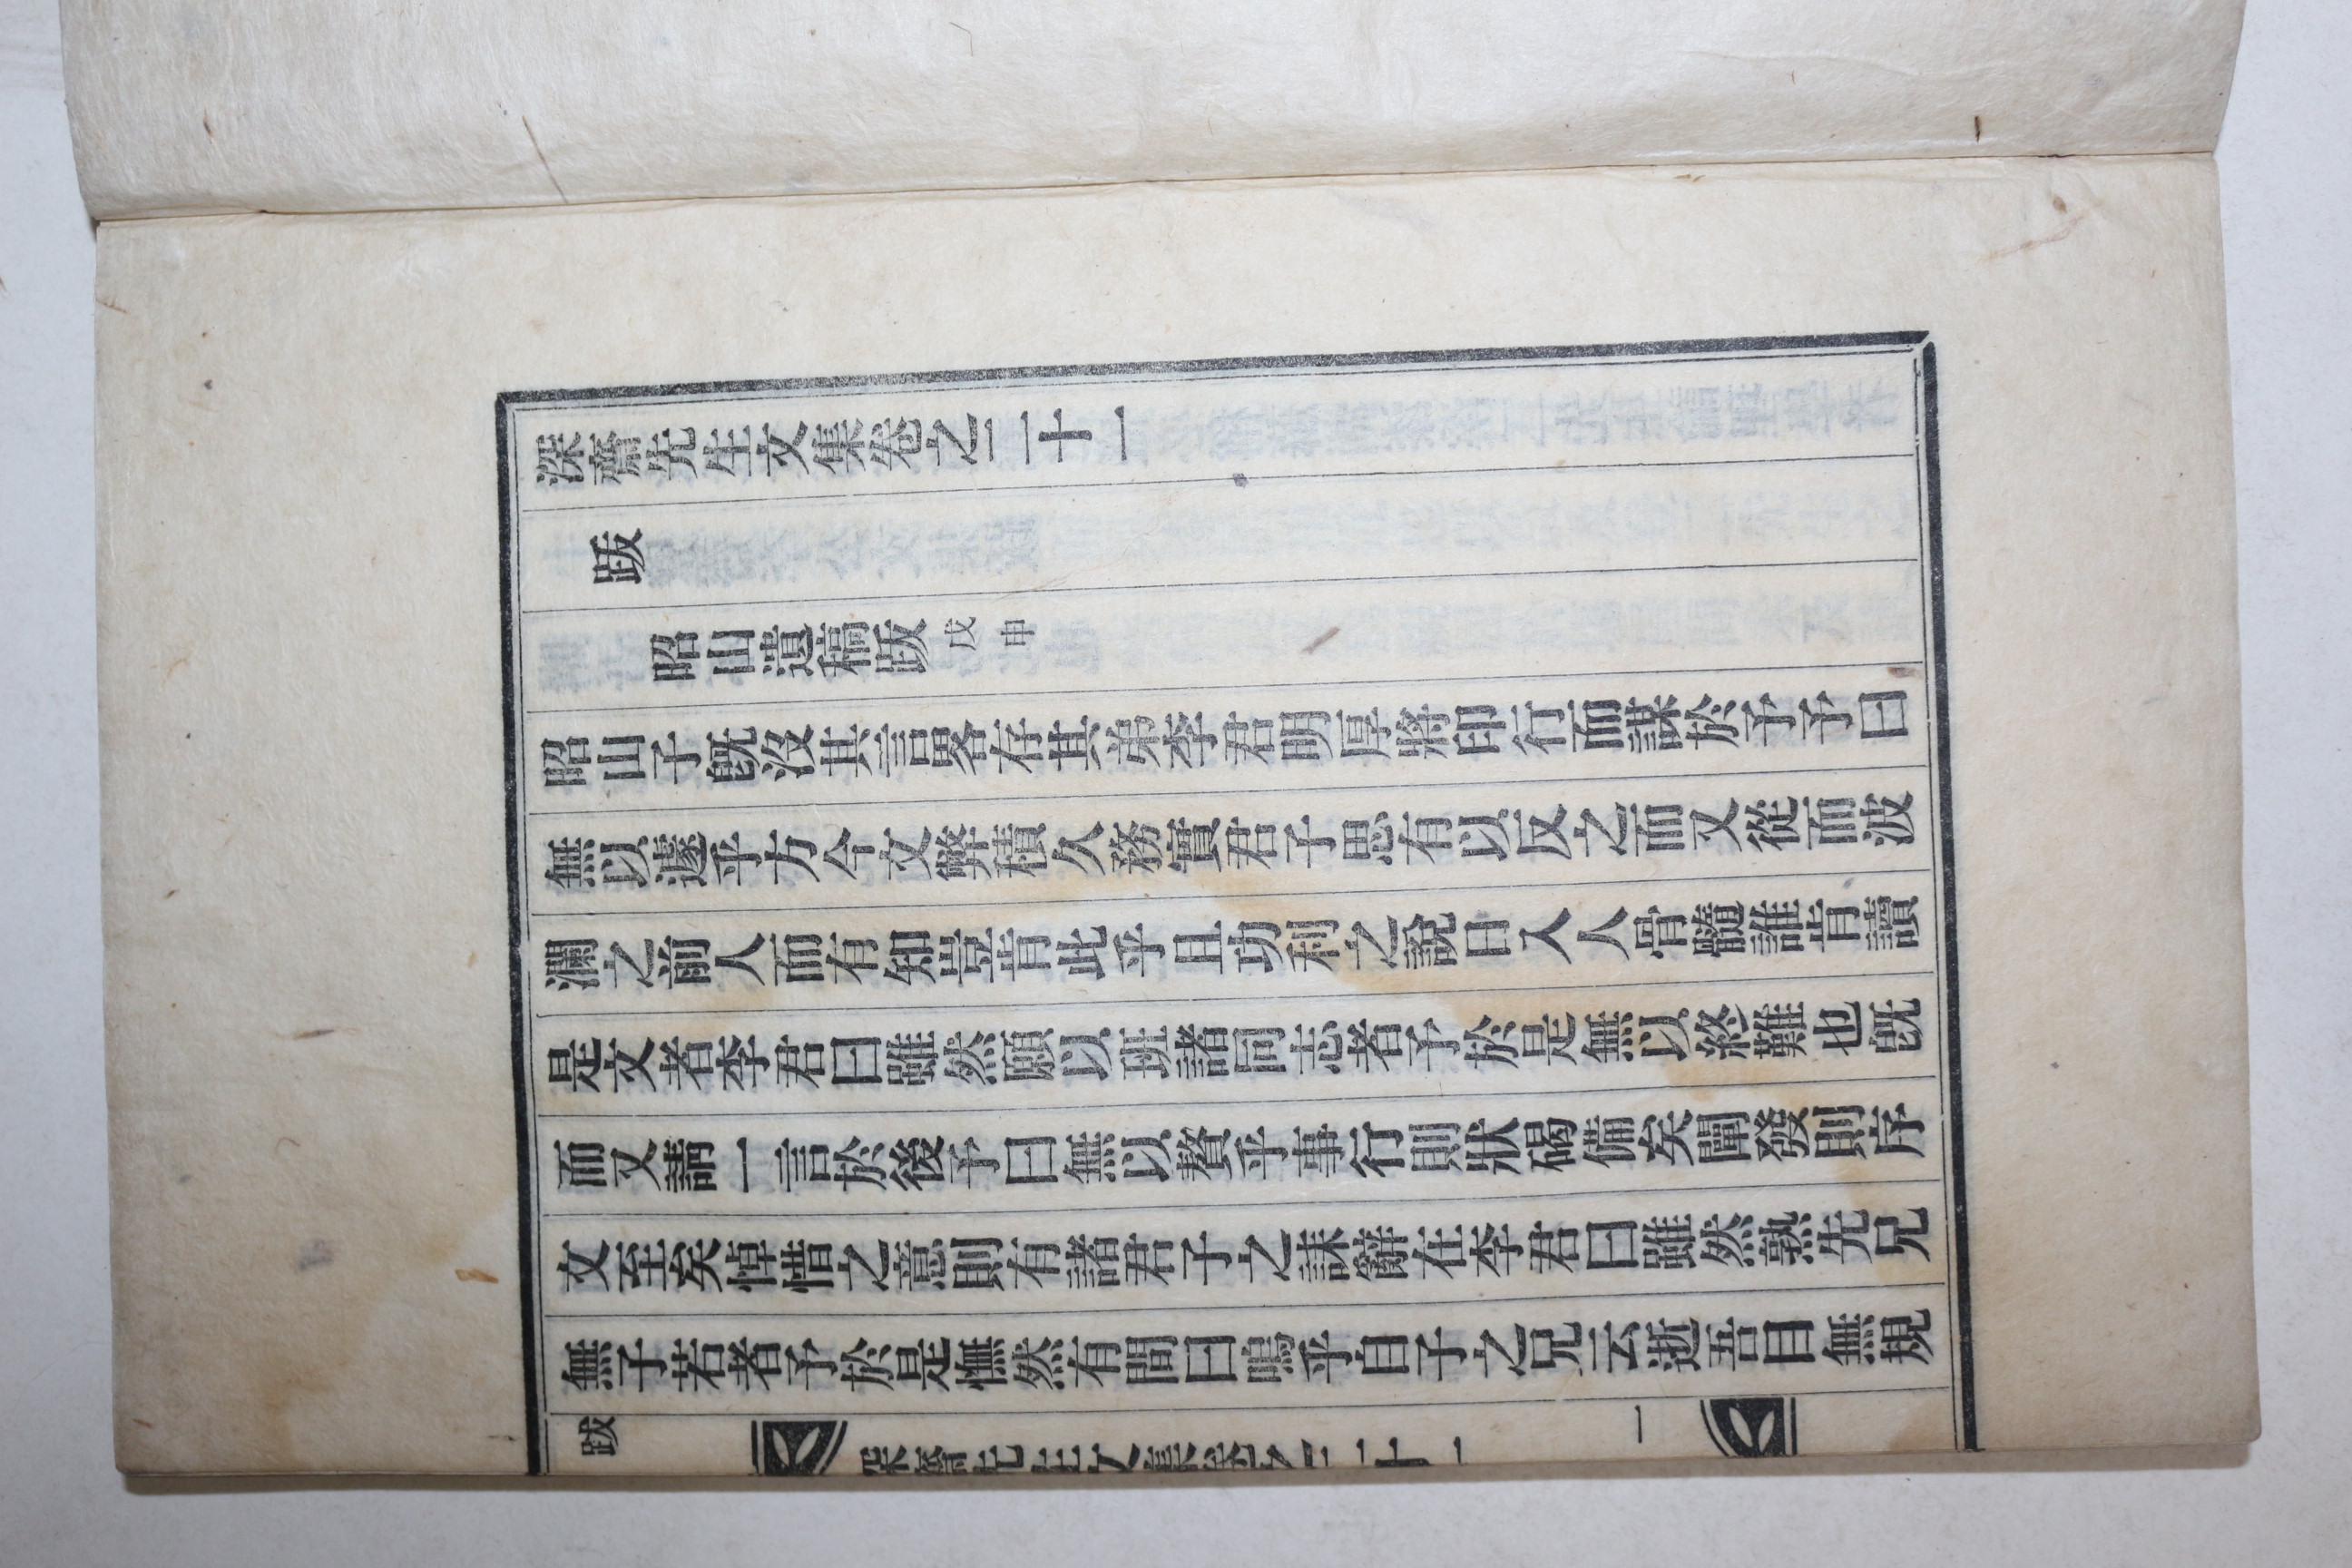 深齋先生文集卷之二十一
跋
昭山遺稿跋 戊申
昭山子旣沒其言畧存其弟李君明厚將印行而謀於予予曰
無以遽乎方今文弊積久務實君子思有以反之而又從而波
瀾之前人而有知豈肯此乎且功利之說日入人骨髓誰肯讀
是文者李君曰雖然願以班諸同志者予於是無以終難也旣
而又請一言於後予曰無以贅乎事行則狀碣備矣闡發則序
文至矣悼惜之意則有諸君子之誄辭在李君曰雖然孰先兄
無子若者予於是憮然有間曰嗚乎自子之兄云逝吾目無規
跋
深齋先生文集卷之二十一
一